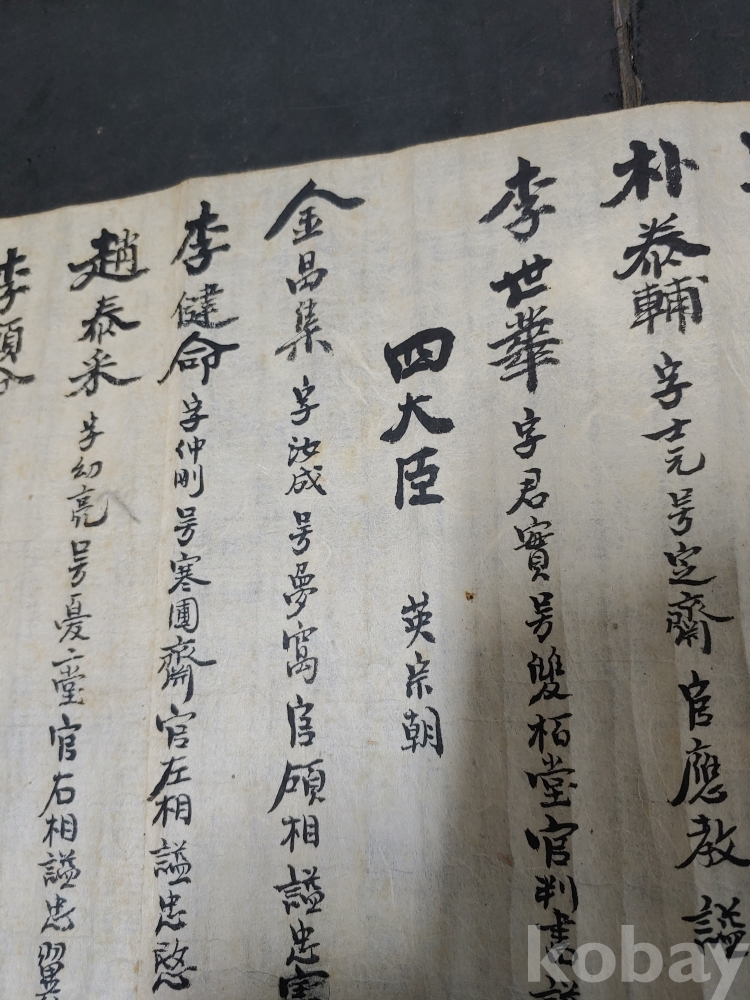 朴泰輔 字士元 号定齋 官應教 謚
李世華 字君實 号雙栢堂 官判書 謚
四大臣 英宗朝
金昌集 字汝成 号夢窩 官領相 謚忠
李健命 字仲剛 号寒圃齋 官左相 謚忠愍
趙泰采 字幼亮 号憂堂 官右相 謚忠翼
李頤命
kobay